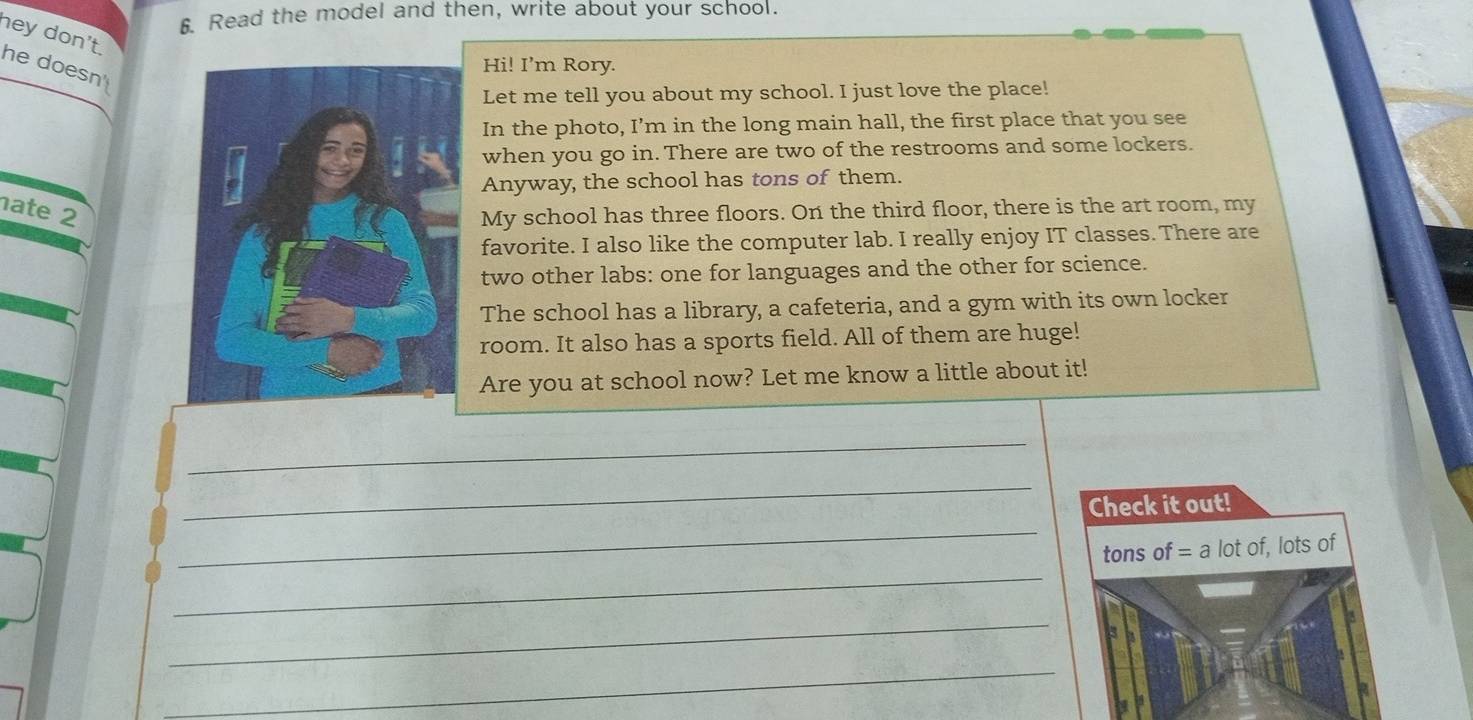 hey don't.
he doesn't
nate 2
6. Read the model and then, write about your school.
Hi! I'm Rory.
Let me tell you about my school. I just love the place!
In the photo, I'm in the long main hall, the first place that you see
when you go in. There are two of the restrooms and some lockers.
Anyway, the school has tons of them.
My school has three floors. On the third floor, there is the art room, my
favorite. I also like the computer lab. I really enjoy IT classes. There are
two other labs: one for languages and the other for science.
The school has a library, a cafeteria, and a gym with its own locker
room. It also has a sports field. All of them are huge!
Are you at school now? Let me know a little about it!
Check it out!
tons of = a lot of, lots of